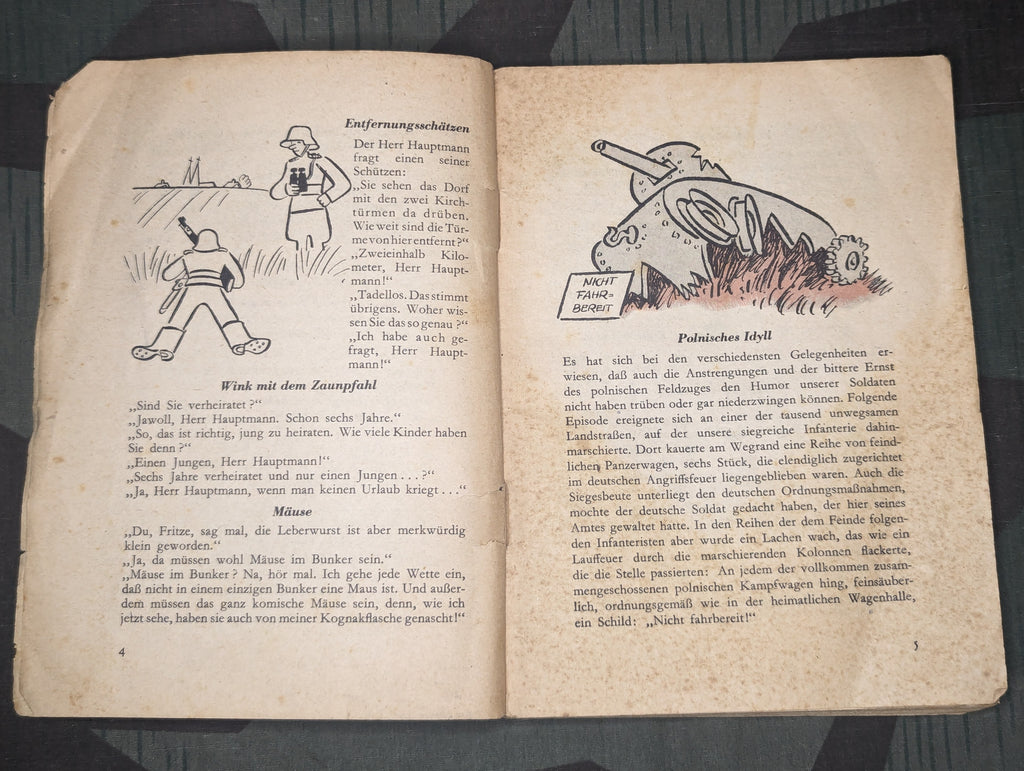 Entfernungsschätzen
Der Herr Hauptmann
fragt einen seiner
Schützen:
„Sie sehen das Dorf
mit den zwei Kirch-
türmen da drüben.
Wie weit sind die Tür-
me von hier entfernt?“
„Zweieinhalb Kilo-
meter, Herr Haupt-
mann!“
„Tadellos. Das stimmt
übrigens. Woher wis-
sen Sie das so genau?“
„Ich habe auch ge-
fragt, Herr Haupt-
mann!“
Wink mit dem Zaunpfahl
„Sind Sie verheiratet?“
„Jawoll, Herr Hauptmann. Schon sechs Jahre.“
„So, das ist richtig, jung zu heiraten. Wie viele Kinder haben
Sie denn?“
„Einen Jungen, Herr Hauptmann!“
„Sechs Jahre verheiratet und nur einen Jungen . . . ?“
„Ja, Herr Hauptmann, wenn man keinen Urlaub kriegt . . .“
Mäuse
„Du, Fritze, sag mal, die Leberwurst ist aber merkwürdig
klein geworden.“
„Ja, da müssen wohl Mäuse im Bunker sein.“
„Mäuse im Bunker? Na, hör mal. Ich gehe jede Wette ein,
daß nicht in einem einzigen Bunker eine Maus ist. Und außer-
dem müssen das ganz komische Mäuse sein, denn, wie ich
jetzt sehe, haben sie auch von meiner Kognakflasche genascht!“
4
NICHT
FAHR=
BEREIT
Polnisches Idyll
Es hat sich bei den verschiedensten Gelegenheiten er-
wiesen, daß auch die Anstrengungen und der bittere Ernst
des polnischen Feldzuges den Humor unserer Soldaten
nicht haben trüben oder gar niederzwingen können. Folgende
Episode ereignete sich an einer der tausend unwegsamen
Landstraßen, auf der unsere siegreiche Infanterie dahin-
marschierte. Dort kauerte am Wegrand eine Reihe von feind-
lichen Panzerwagen, sechs Stück, die elendiglich zugerichtet
im deutschen Angriffsfeuer liegengeblieben waren. Auch die
Siegesbeute unterliegt den deutschen Ordnungsmaßnahmen,
mochte der deutsche Soldat gedacht haben, der hier seines
Amtes gewaltet hatte. In den Reihen der dem Feinde folgen-
den Infanteristen aber wurde ein Lachen wach, das wie ein
Lauffeuer durch die marschierenden Kolonnen flackerte,
die die Stelle passierten: An jedem der vollkommen zusam-
mengeschossenen polnischen Kampfwagen hing, feinsäuber-
lich, ordnungsgemäß wie in der heimatlichen Wagenhalle,
ein Schild: „Nicht fahrbereit!“
5